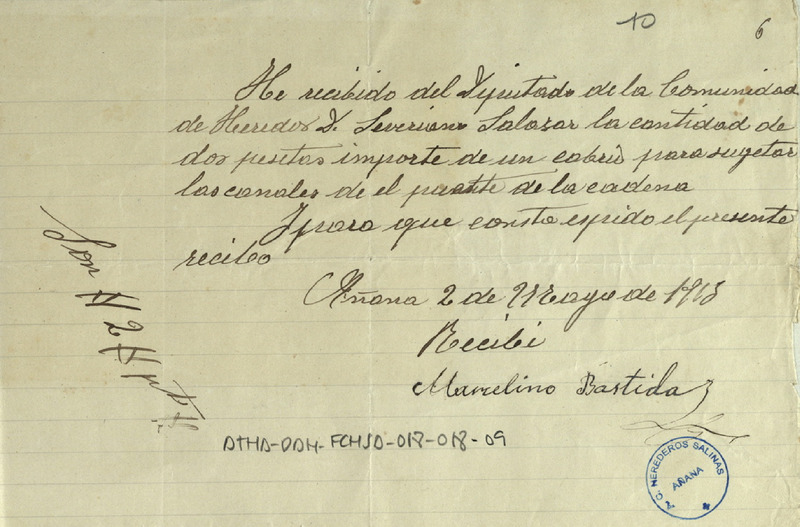 10
6
He recibido del Diputado de la Comunidad
de Heredos D. Severiano Salazar la cantidad de
dos pesetas importe de un cabrio para sugetar
las canales de el puente de la cadena
I para que consta espido el presente
recibo
Añana 2 de Mayo de 1913
Recibi
Marcelino Bastida
Son # 2 # pts
ATHA-DAH-FCHSA-018-018-09
A. C. HEREDEROS SALINAS
AÑANA